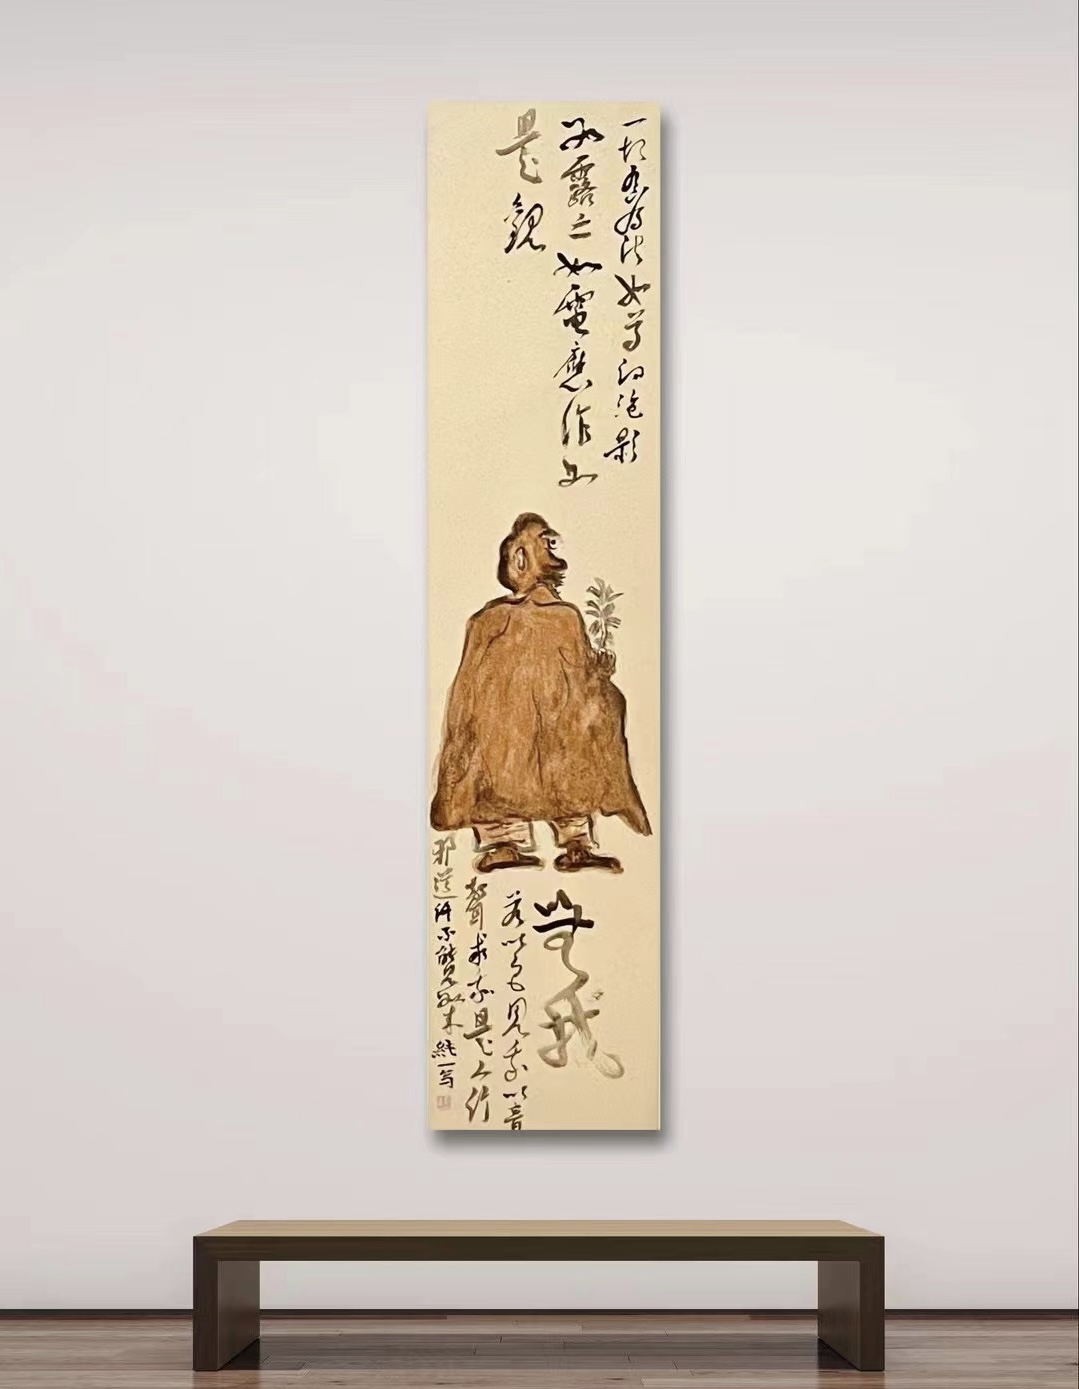 一切有為法如夢幻泡影
如露亦如電應作如
是觀
無我
若以色見我以音
聲求我是人行
邪道不能見如來純一寫